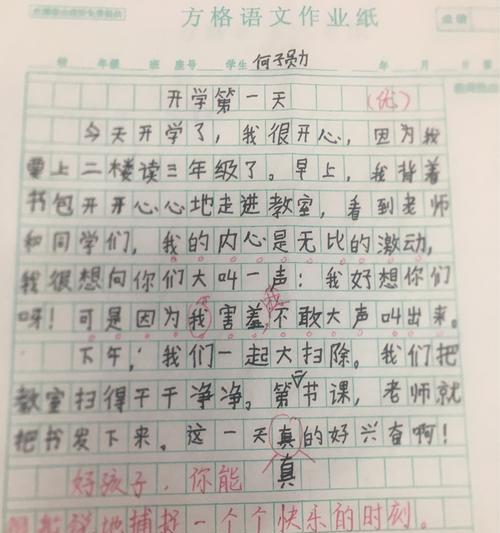 方格语文作业纸
成绩
学 年级 班 座号 学生 何子勋 年 月 日
开学第一天 (优)
今天开学了，我很开心，因为我
要上二楼读三年级了。早上，我背着
书包开开心心地走进教室，看到老师
和同学们，我的内心是无比的激动，
我很想向你们大叫一声：我好想你们
呀！可是因为我害羞，不敢大声叫出来。
下午，我们一起大扫除。我们把
教室扫得干干净净。第节课，老师就
把书发下来。这一天真的好兴奋啊！
好孩子，你能 真
地捕捉一个个快乐的时刻。